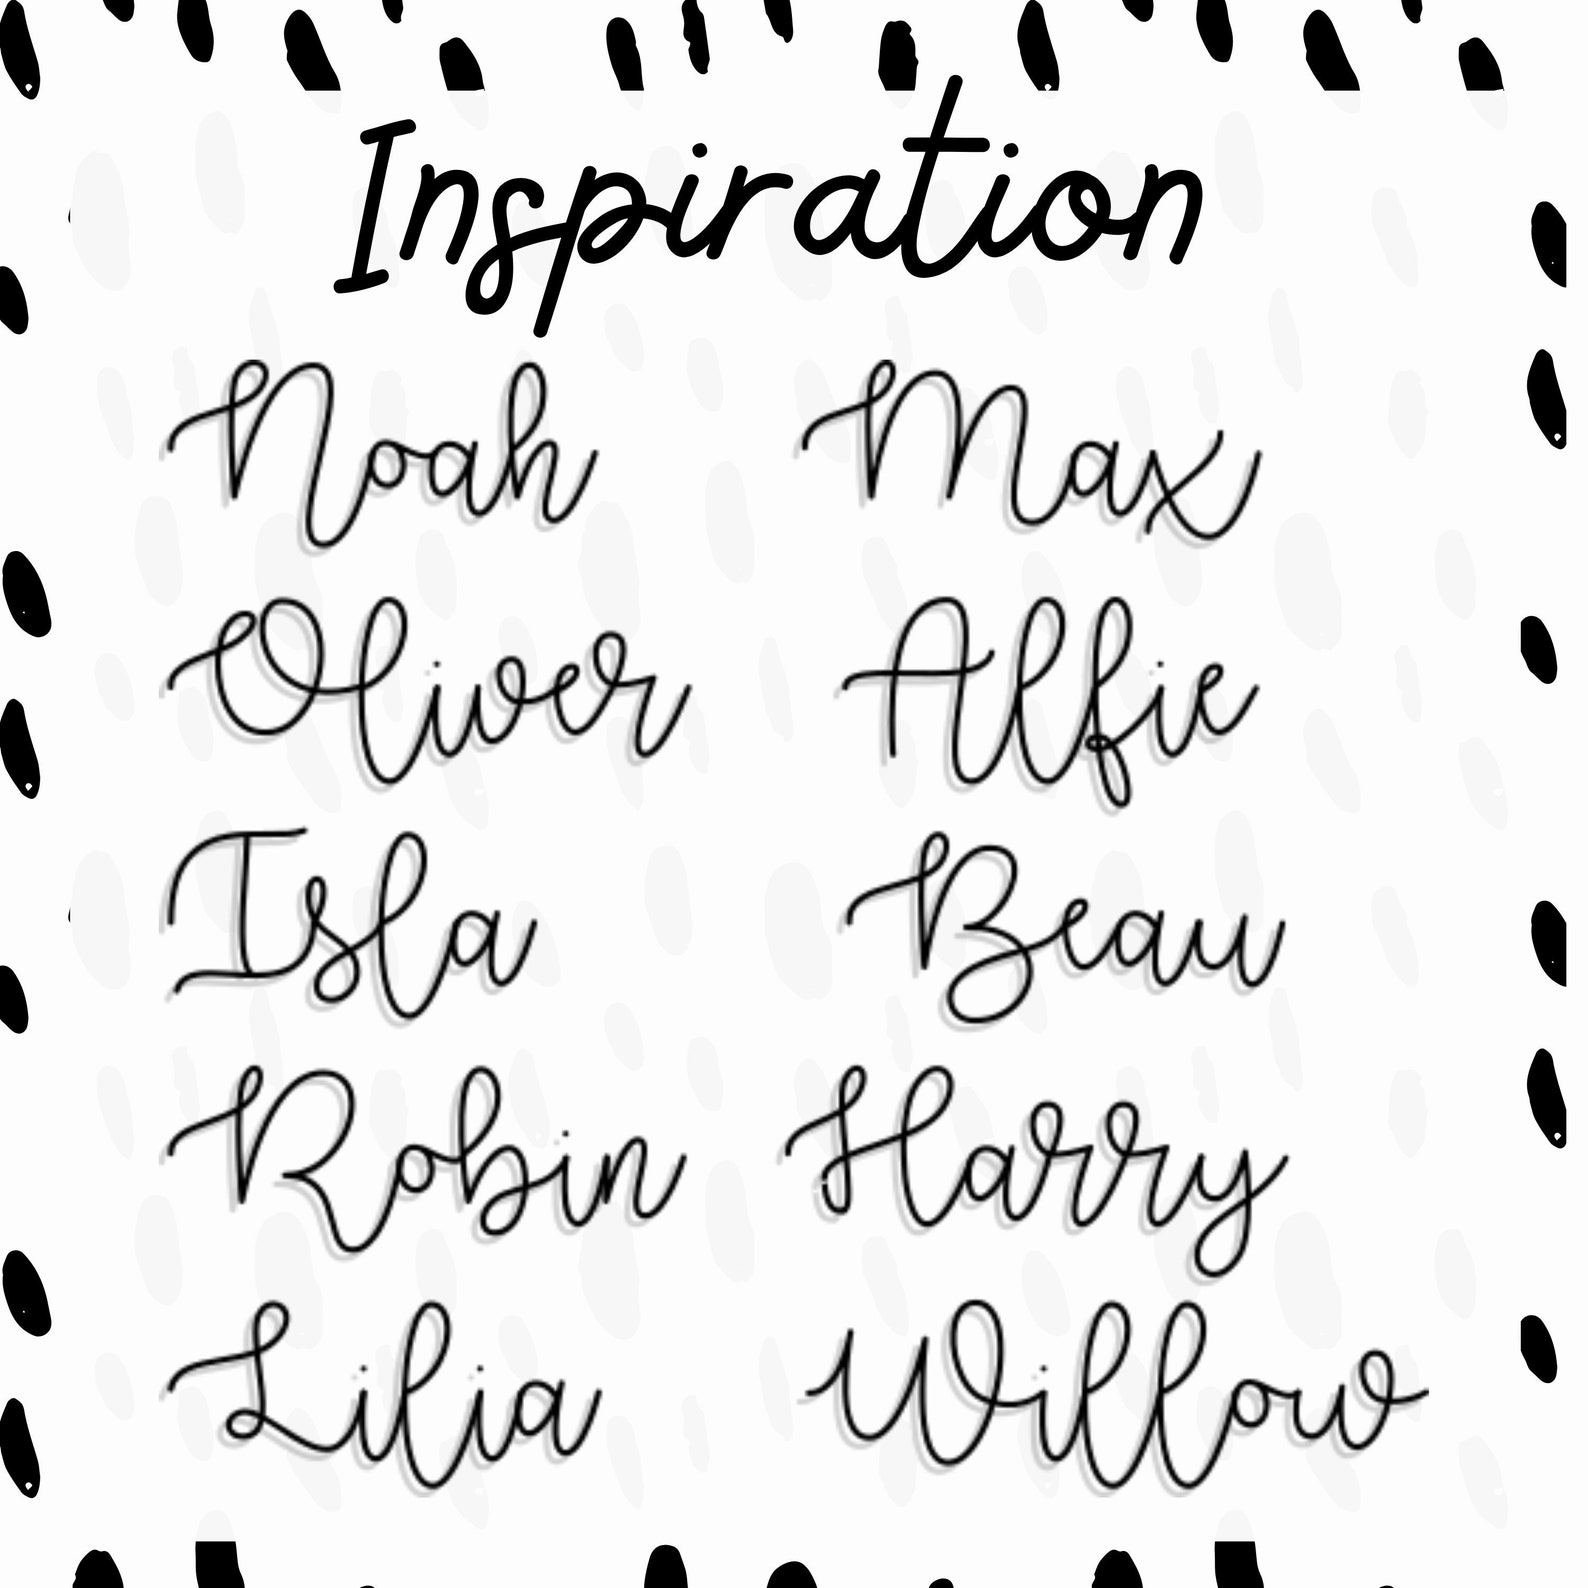 Inspiration
Noah Max
Oliver Alfie
Isla Beau
Robin Harry
Lilia Willow